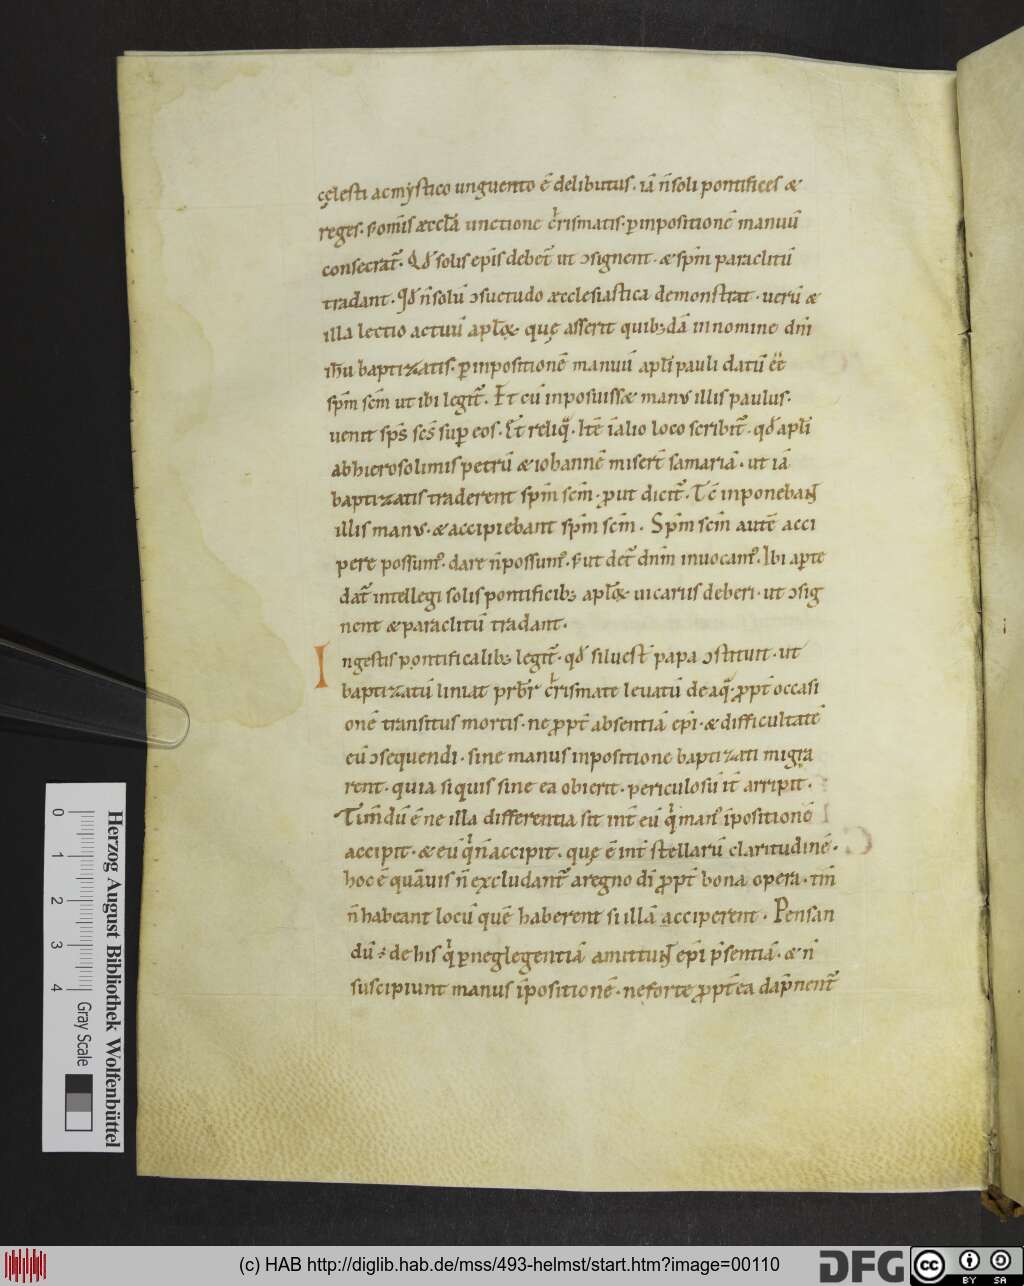 cęlesti ac mẏstico unguento ē delibutus. iā n̄ soli pontifices &
reges. s; om̄is æccłā unctione cħrismatis. ꝑ inpositionē manuū
consecrat̄. Qđ solis ep̄is debet̄ ut ↄsignent. & sp̄m paraclitū
tradant. Qđ n̄ solū ↄsuetudo æcclesiastica demonstrat. uerū &
illa lectio actuū apłoꝝ. quę asserit quibꝫdā in nomine dn̄i
iħu baptizatis. ꝑ inpositionē manuū apłi pauli datū eēt
sp̄m sc̄m ut ibi legit̄. Et cū inposuiss& manus illis paulus.
uenit sp̄s sc̄s sup̄ eos. Et reliq̄. Itē ī alio loco scribit̄. qđ apłi
ab hierosolimis petrū & iohannē miser̄t samariā. ut iā
baptizatis traderent sp̄m sc̄m. ꝓut dicit̄. Tc̄ inponebant
illis manus. & accipiebant sp̄m sc̄m. Sp̄m sc̄m autē acci
pere possunt̄. dare n̄ possunt̄. s; ut det̄ dn̄m inuocant̄. Ibi aꝑte
dat̄ intellegi solis pontificibꝫ apłoꝝ uicariis deberi. ut ↄsig
nent & paraclitū tradant.
In gestis pontificalibꝫ legit̄. qđ siluest̄ papa ↄstituit. ut
baptizatū liniat p̄rbr̄ cħrismate leuatū de aq̄. ꝓpt̄ occasi
onē transitus mortis. ne ꝓpt̄ absentiā ep̄i. & difficultatē
eū ↄsequendi. sine manus inpositione baptizati migra
rent. quia siquis sine ea obierit. periculosū it̄ arripit.
Tim̄dū ē ne illa differentia sit int̄ eū qͥ man̄ īpositionē
accipit. & eū qͥ n̄ accipit. quę ē int̄ stellarū claritudinē.
hoc ē quāuis n̄ excludant̄ a regno dī ꝓpt̄ bona opera. tm̄
n̄ habeant locū quē haberent si illā acciperent. Pensan
dū ÷ de his qͥ ꝑ neglegentiā amittunt ep̄i p̄sentiā. & n̄
suscipiunt manus īpositionē. ne forte ꝓpt̄ea dāpnent̄
Herzog August Bibliothek Wolfenbüttel
0 1 2 3 4
Gray Scale
(c) HAB http://diglib.hab.de/mss/493-helmst/start.htm?image=00110
DFG
cc BY SA